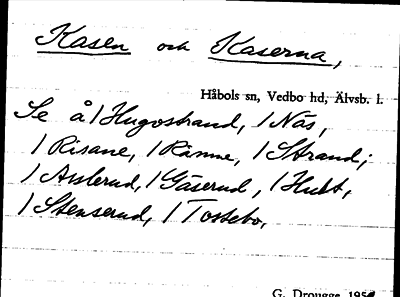 Kasen och Kaserna,
Håbols sn, Vedbo hd, Älvsb. l.
Se å/Hugostrand, /Näs,
/Risane, /Ränne, /Strand;
/Asslerud, /Gäserud, /Hult,
/Stenserud, /Tossebo,
G. Drougge 195